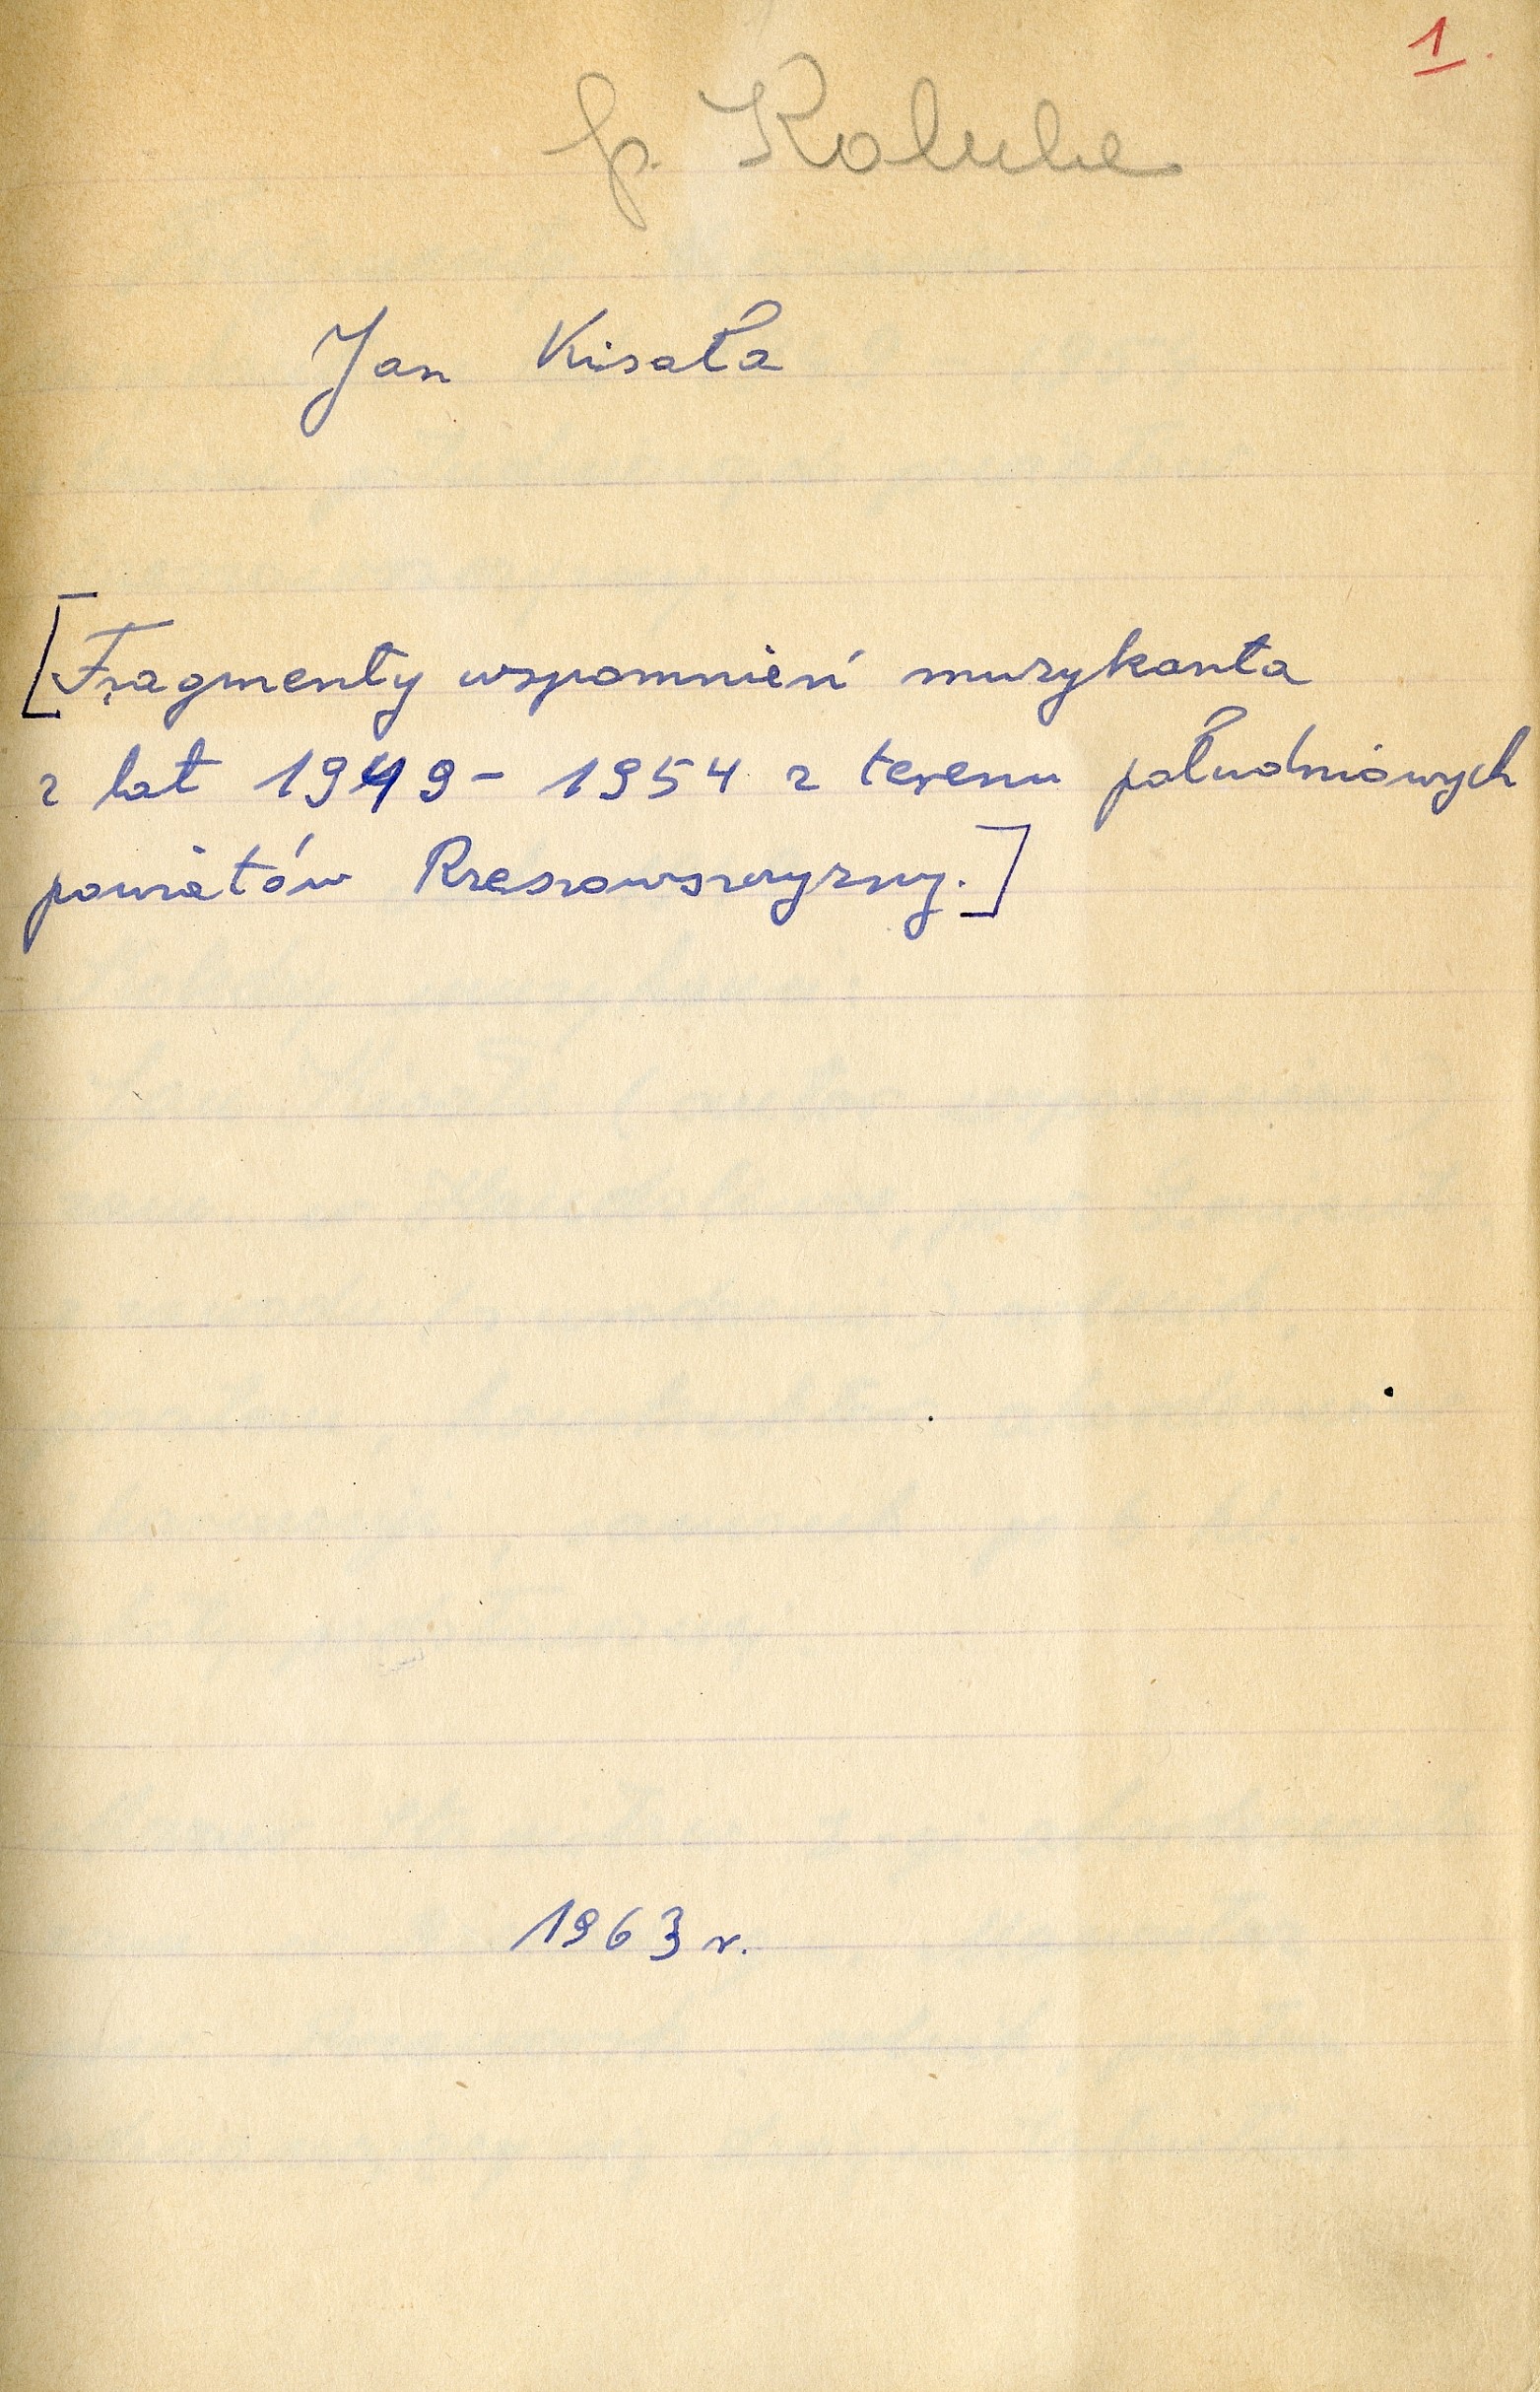 1.
p.
Jan Kisała
[Fragmenty wspomnień muzykanta
z lat 1949 - 1954 z terenu południowych
powiatów Rzeszowszczyzny.]
1963 r.